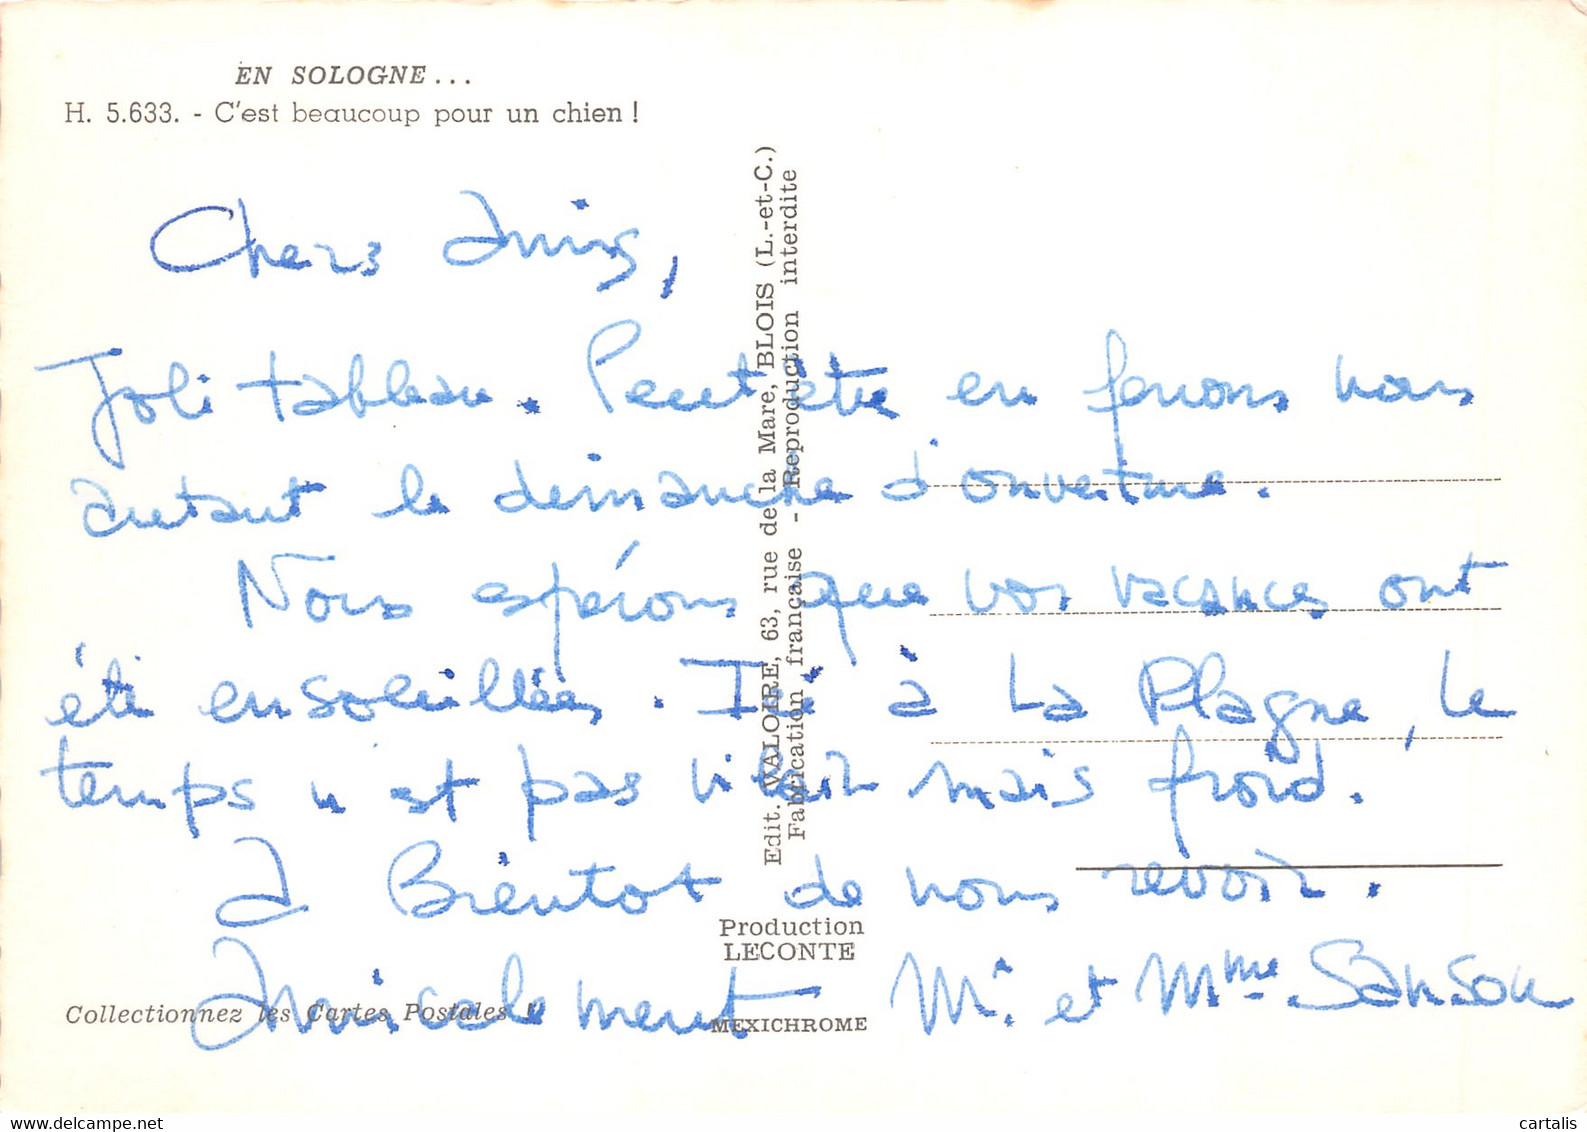 EN SOLOGNE...
H. 5.633. - C'est beaucoup pour un chien !
Chers Amis,
Joli tableau. Peut être en ferons nous
autant le dimanche d'ouverture.
Nous espérons que vos vacances ont
été ensoleillées. Ici à La Plagne, le
temps n'est pas vilain mais froid.
A Bientot de nous revoir.
Amicalement Mr. et Mme. Sanson
Edit. VALOIRE, 63, rue de la Mare, BLOIS (L.-et-C.)
Fabrication française - Reproduction interdite
Production
LECONTE
Collectionnez les Cartes Postales !
MEXICHROME
delcampe.net
cartalis